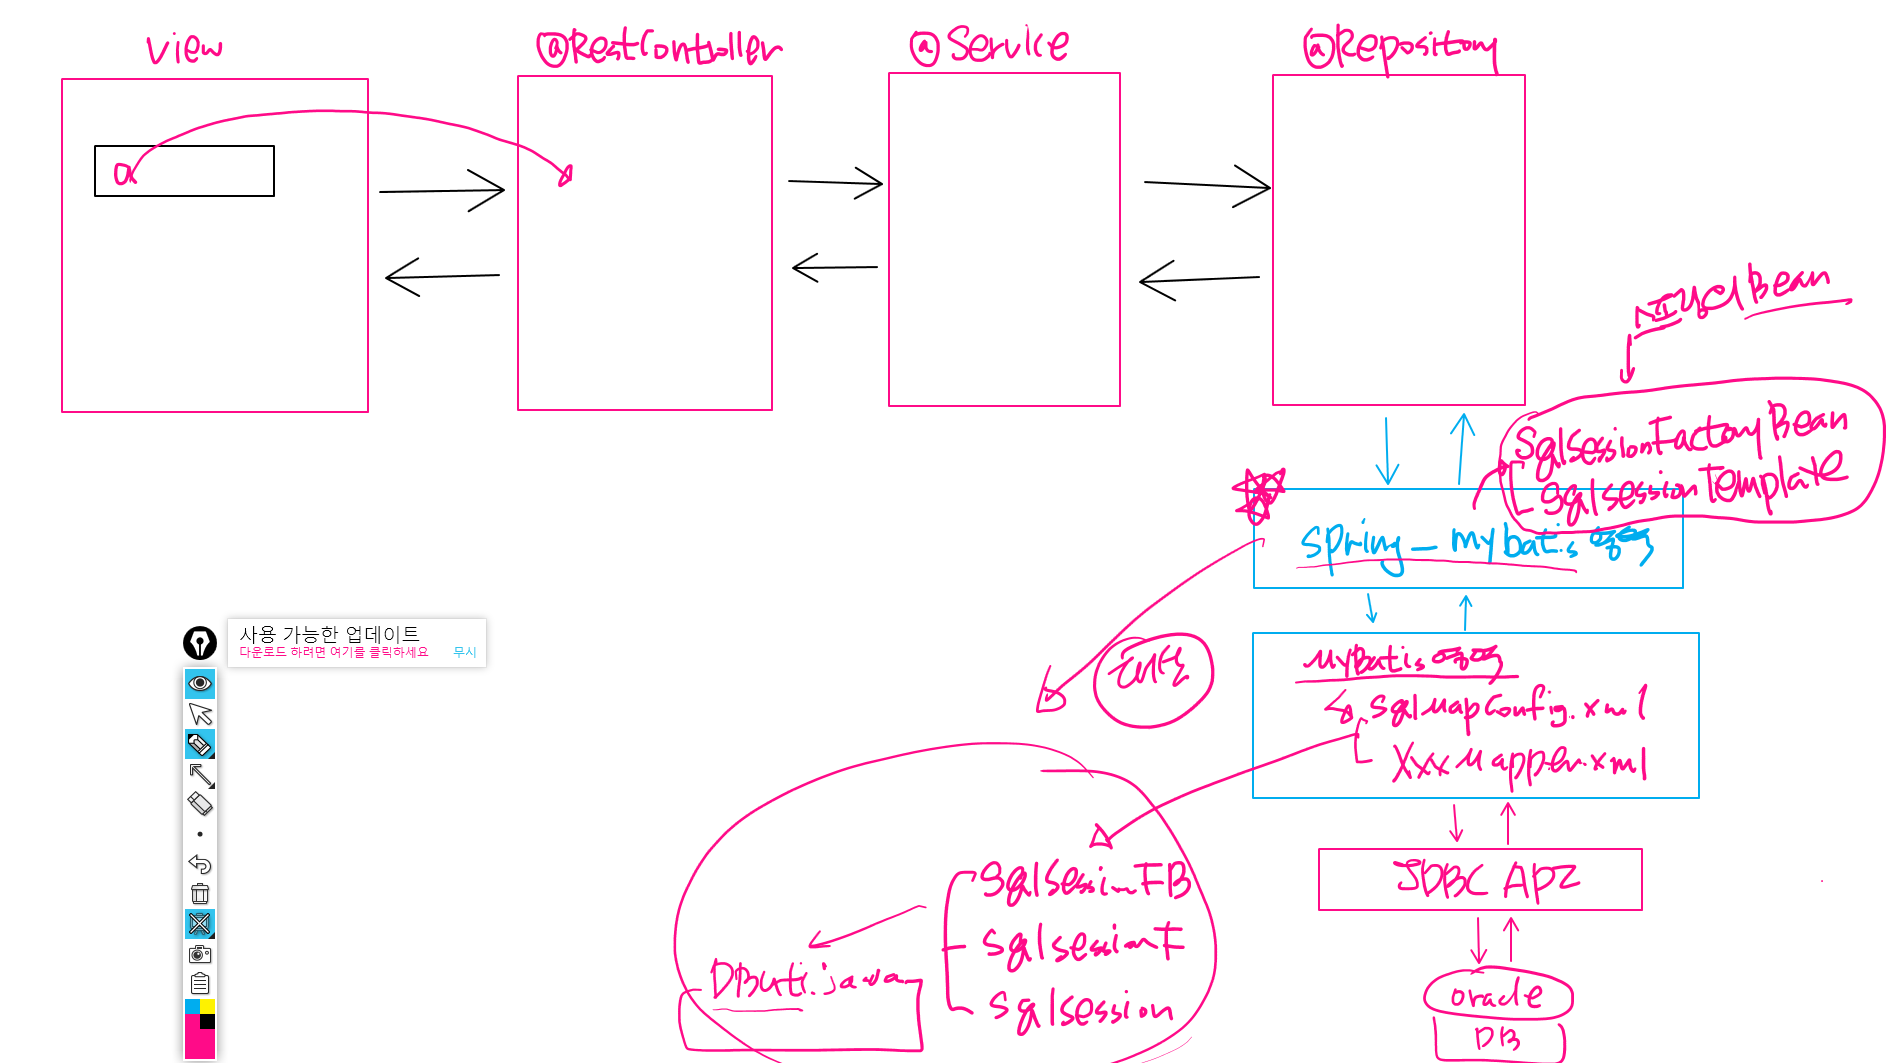 view
@RestController
@Service
@Repository
a
스프링 Bean
SqlSessionFactoryBean
SqlSessionTemplate
spring-mybatis 영역
MyBatis 영역
SqlMapConfig.xml
XxxMapper.xml
JDBC API
oracle
DB
SqlSessionFB
SqlSessionF
SqlSession
DButil.java
사용 가능한 업데이트
다운로드 하려면 여기를 클릭하세요 무시